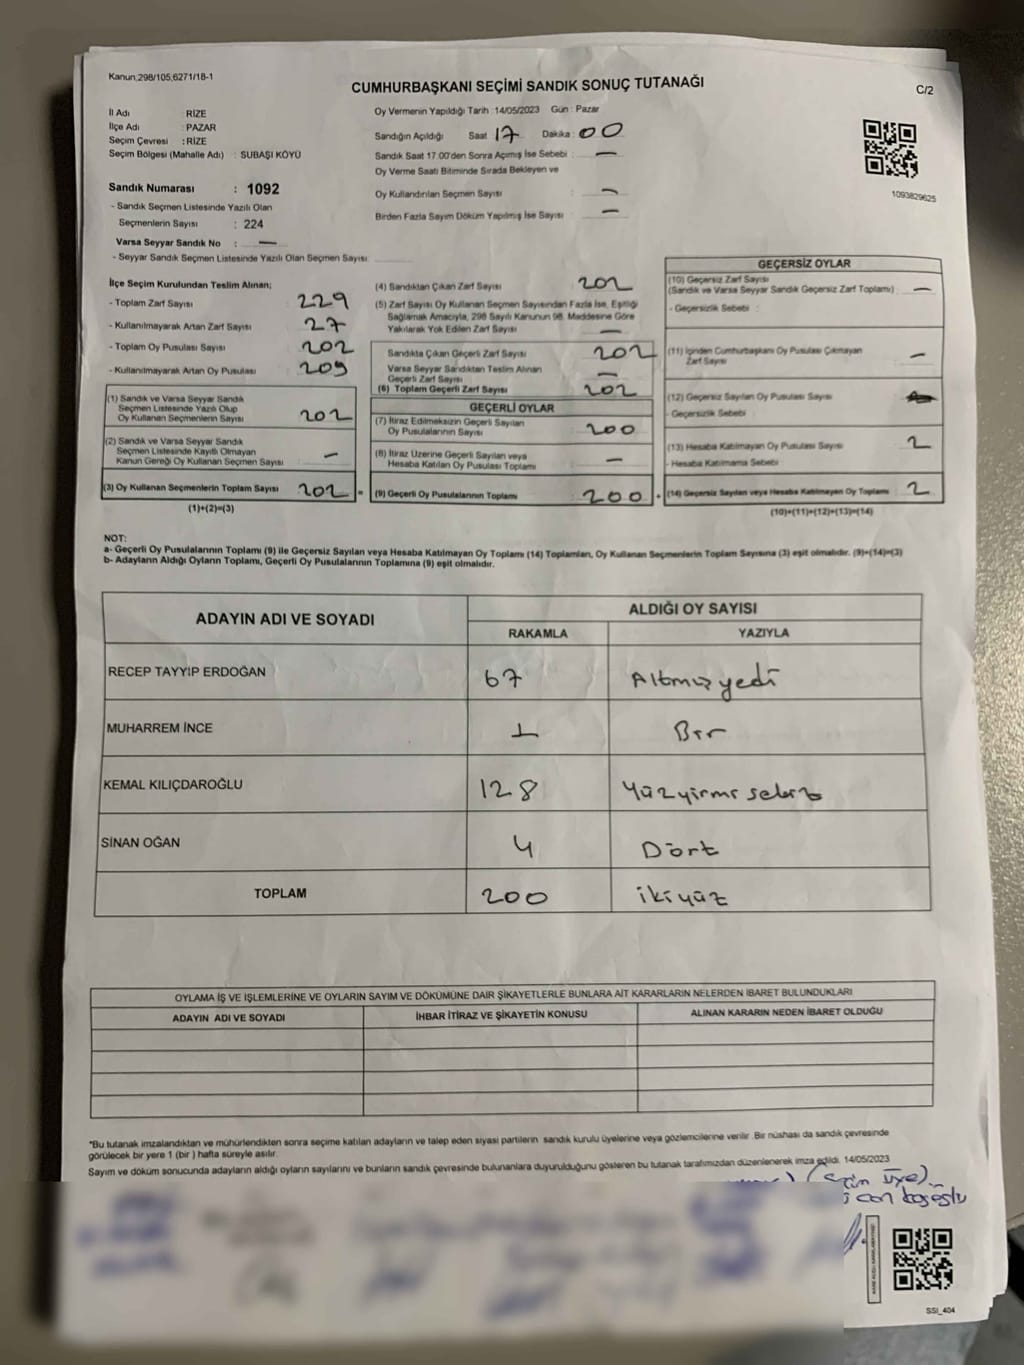 Kanun,298/105,6271/18-1
CUMHURBAŞKANI SEÇİMİ SANDIK SONUÇ TUTANAĞI
C/2
İl Adı : RİZE
İlçe Adı : PAZAR
Seçim Çevresi : RİZE
Seçim Bölgesi (Mahalle Adı) : SUBAŞI KÖYÜ
Sandık Numarası : 1092
- Sandık Seçmen Listesinde Yazılı Olan
Seçmenlerin Sayısı : 224
Varsa Seyyar Sandık No : —
- Seyyar Sandık Seçmen Listesinde Yazılı Olan Seçmen Sayısı
Oy Vermenin Yapıldığı Tarih : 14/05/2023 Gün : Pazar
Sandığın Açıldığı Saat 17 Dakika : 00
Sandık Saat 17.00'den Sonra Açımış İse Sebebi : —
Oy Verme Saati Bitiminde Sırada Bekleyen ve
Oy Kullandırılan Seçmen Sayısı : —
Birden Fazla Sayım Döküm Yapılmış İse Sayısı —
1093829625
İlçe Seçim Kurulundan Teslim Alınan;
- Toplam Zarf Sayısı 229
- Kullanılmayarak Artan Zarf Sayısı 27
- Toplam Oy Pusulası Sayısı 202
- Kullanılmayarak Artan Oy Pusulası 209
(1) Sandık ve Varsa Seyyar Sandık
Seçmen Listesinde Yazılı Olup
Oy Kullanan Seçmenlerin Sayısı 202
(2) Sandık ve Varsa Seyyar Sandık
Seçmen Listesinde Kayıtlı Olmayan
Kanun Gereği Oy Kullanan Seçmen Sayısı —
(3) Oy Kullanan Seçmenlerin Toplam Sayısı 202 =
(1)+(2)=(3)
(4) Sandıktan Çıkan Zarf Sayısı 202
(5) Zarf Sayısı Oy Kullanan Seçmen Sayısından Fazla İse, Eşitliği
Sağlamak Amacıyla, 298 Sayılı Kanunun 98. Maddesine Göre
Yakılarak Yok Edilen Zarf Sayısı —
Sandıkta Çıkan Geçerli Zarf Sayısı 202
Varsa Seyyar Sandıktan Teslim Alınan
Geçerli Zarf Sayısı —
(6) Toplam Geçerli Zarf Sayısı 202
GEÇERLİ OYLAR
(7) İtiraz Edilmeksizin Geçerli Sayılan
Oy Pusulalarının Sayısı 200
(8) İtiraz Üzerine Geçerli Sayılan veya
Hesaba Katılan Oy Pusulası Toplamı —
(9) Geçerli Oy Pusulalarının Toplamı 200 +
GEÇERSİZ OYLAR
(10) Geçersiz Zarf Sayısı
(Sandık ve Varsa Seyyar Sandık Geçersiz Zarf Toplamı) : —
- Geçersizlik Sebebi :
(11) İçinden Cumhurbaşkanı Oy Pusulası Çıkmayan
Zarf Sayısı —
(12) Geçersiz Sayılan Oy Pusulası Sayısı
- Geçersizlik Sebebi :
(13) Hesaba Katılmayan Oy Pusulası Sayısı 2
- Hesaba Katılmama Sebebi
(14) Geçersiz Sayılan veya Hesaba Katılmayan Oy Toplamı 2
(10)+(11)+(12)+(13)=(14)
NOT:
a- Geçerli Oy Pusulalarının Toplamı (9) ile Geçersiz Sayılan veya Hesaba Katılmayan Oy Toplamı (14) Toplamları, Oy Kullanan Seçmenlerin Toplam Sayısına (3) eşit olmalıdır. (9)+(14)=(3)
b- Adayların Aldığı Oyların Toplamı, Geçerli Oy Pusulalarının Toplamına (9) eşit olmalıdır.
ADAYIN ADI VE SOYADI
ALDIĞI OY SAYISI
RAKAMLA YAZIYLA
RECEP TAYYİP ERDOĞAN 67 Altmış yedi
MUHARREM İNCE 1 Bir
KEMAL KILIÇDAROĞLU 128 Yüzyirmi sekiz
SİNAN OĞAN 4 Dört
TOPLAM 200 ikiyüz
OYLAMA İŞ VE İŞLEMLERİNE VE OYLARIN SAYIM VE DÖKÜMÜNE DAİR ŞİKAYETLERLE BUNLARA AİT KARARLARIN NELERDEN İBARET BULUNDUKLARI
ADAYIN ADI VE SOYADI İHBAR İTİRAZ VE ŞİKAYETİN KONUSU ALINAN KARARIN NEDEN İBARET OLDUĞU
*Bu tutanak imzalandıktan ve mühürlendikten sonra seçime katılan adayların ve talep eden siyasi partilerin sandık kurulu üyelerine veya gözlemcilerine verilir. Bir nüshası da sandık çevresinde
görülecek bir yere 1 (bir) hafta süreyle asılır.
Sayım ve döküm sonucunda adayların aldığı oyların sayılarını ve bunların sandık çevresinde bulunanlara duyurulduğunu gösteren bu tutanak tarafımızdan düzenlenerek imza edildi. 14/05/2023
üye)
SSI_404